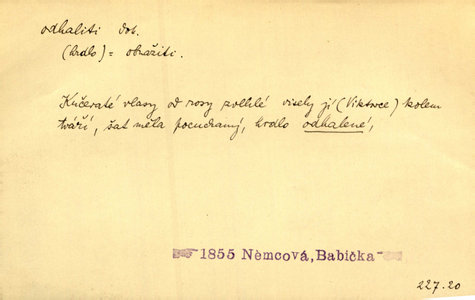 odhaliti dok.
(hrdlo) = obnažiti.
Kučeraté vlasy od rosy zvlhlé visely jí (Viktorce) kolem
tváří, šat měla pocuchaný, hrdlo odhalené,
1855 Němcová, Babička
227.20